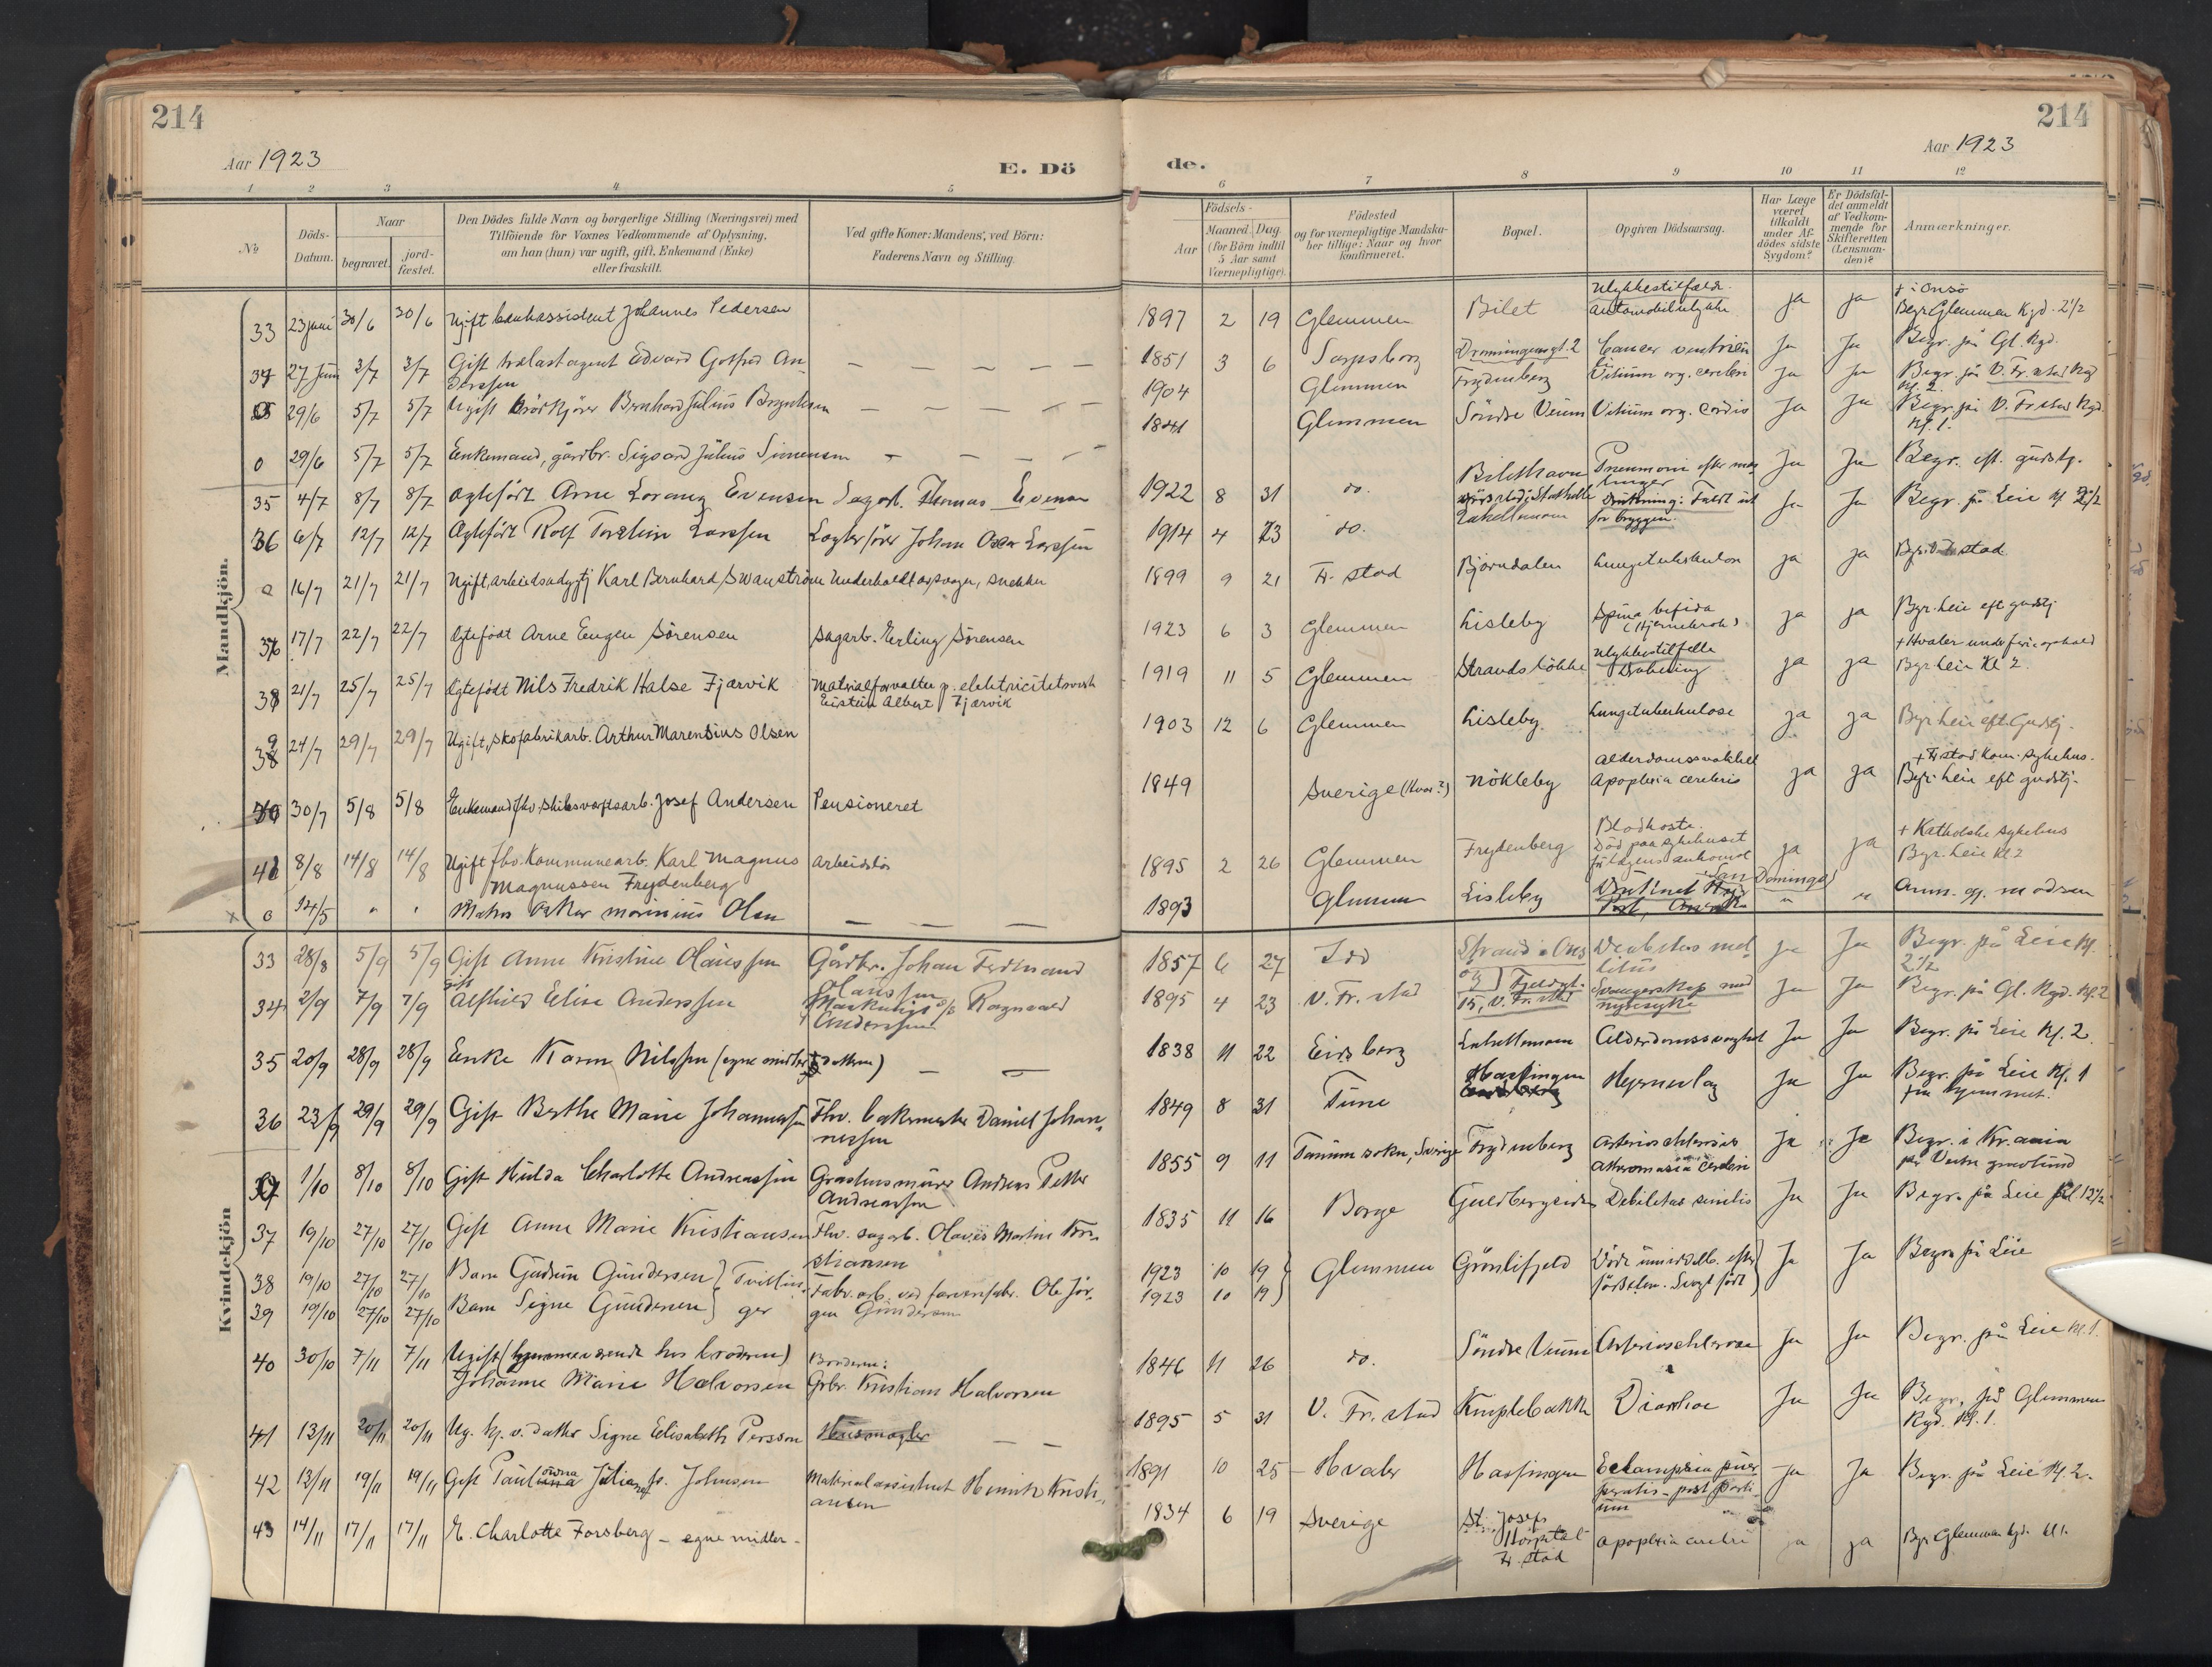 214
Aar 1923
E. Dö
1 2 3 4 5
No
Döds-
Datum.
Naar
begravet.
jord-
fæstet.
Den Dödes fulde Navn og borgerlige Stilling (Næringsvei) med
Tilföiende for Voxnes Vedkommende af Oplysning,
om han (hun) var ugift, gift, Enkemand (Enke)
eller fraskilt.
Ved gifte Koner: Mandens, ved Börn:
Faderens Navn og Stilling.
Mandkjön.
33 23 juni 30/6 30/6 Ugift bankassistent Johannes Pedersen
34 27 Juni 2/7 2/7 Gift trælastagent Edvard Gotfred An-
derssen — — — — —
29/6 5/7 5/7 Ugift Bernhard Julius Brynildsen — — — —
0 29/6 5/7 5/7 Enkemand, gårdbr. Sigvard Julius Simensen — — — —
35 4/7 8/7 8/7 Ægteført Arne Lorang Evensen Sagarb. Thomas Evensen
36 6/7 12/7 12/7 Ægteført Rolf Torstein Larssen Johan Oscar Larssen
0 16/7 21/7 21/7 Ugift, arbeidsudygtig Karl Bernhard Swanström Underholdt av svoger, snekker
37 17/7 22/7 22/7 Ægtefødt Arne Eugen Sörensen Sagarb. Erling Sörensen
38 21/7 25/7 25/7 Ægtefødt Nils Fredrik Halse Fjærvik Matrialforvalter p. elektricitetsverk
Eistein Albert Fjærvik
39 24/7 29/7 29/7 Ugift, skofabrikarb. Arthur Marensius Olsen
40 30/7 5/8 5/8 Enkemand fhv. skibsværftsarb. Josef Andersen Pensioneret
41 8/8 14/8 14/8 Ugift fhv. Kommunearb. Karl Magnus Arbeidsløs
Magnussen Frydenberg
x 0 14/5 " " Matros Oskar Marinius Olsen — — —
Kvindekjön
33 28/8 5/9 5/9 Gift Anne Kristine Olaussen Gårdbr. Johan Ferdinand
Olaussen
34 2/9 7/9 7/9 gift Alfhild Elise Anderssen Ragnvald
Anderssen
35 20/9 28/9 28/9 Enke Karen Nilssen (egne midler) — —
36 23/9 29/9 29/9 Gift Berthe Marie Johannessen Fhv. bakermester Daniel Johan-
nessen
0 1/10 8/10 8/10 Gift Hulda Charlotte Andreassen Gråstensmurer Andreas Petter
Andreassen
37 19/10 27/10 27/10 Gift Anne Marie Kristiansen Fhv. sagarb. Olaves Martin Kri-
stiansen
38 19/10 27/10 27/10 Barn Gudrun Gundersen } Tvillin-
39 19/10 27/10 27/10 Barn Signe Gundersen } ger
Fabr. arb. ved farvenfabr. Ole Jör-
gen Gundersen
40 30/10 7/11 7/11 Ugift (hjemmeværende hos broderen) Broderen:
Johanne Marie Halvorsen Gbr. Kristian Halvorsen
41 13/11 20/11 20/11 Ug. hj. v. datter Signe Elisabeth Persson Husmægler — —
42 13/11 19/11 19/11 Gift f. Johnsen Materialassistent Henrik Kristi-
ansen
43 14/11 17/11 17/11 E. Charlotte Forsberg – egne midler –
214
Aar 1923
de.
6 7 8 9 10 11 12
Födsels-
Aar
Maaned. Dag
(for Börn indtil
5 Aar samt
Værnepligtige).
Födested
og for værnepligtige Mandska-
ber tillige: Naar og hvor
konfirmeret.
Bopæl.
Opgiven Dödsaarsag.
Har Læge
været
tilkaldt
under Af-
dödes sidste
Sygdom?
Er Dödsfal-
det anmeldt
af Vedkom-
mende for
Skifteretten
(Lensman-
den)?
Anmærkninger.
1897 2 19 Glemmen Bilet Ulykkestilfælde. Automobilulykke ja ja + i Onsö
Begr. Glemmen Kgd. 2 1/2
1851 3 6 Sarpsborg Dronningensgt. 2 Cancer ventriculi Ja Ja Begr. på Gl. Kgd.
1904 Glemmen Frydenberg Vitium org. cerebri Ja Ja Begr. på V. Fr.stad Kgd
Kl. 2.
1841 Glemmen Söndre Veum Vitium org. cordis Ja Ja Begr. på V. Fr.stad Kgd.
Kl. 1.
1922 8 31 do. Bilethavn Pneumoni efter Ja Ja Begr. eft. gudstj.
1914 4 23 do. Drukning: Faldt ut
for bryggen. Ja Ja Begr. på Leie kl. 2 1/2
1899 9 21 Fr. stad Bjørndalen Lungetuberkulose ja ja
1923 6 3 Glemmen Lisleby Spina bifida
(Hjernebrok) ja ja Begr. Leie eft gudstj.
1919 11 5 Glemmen Strandstökke Ulykkestilfælle
Drukning ja ja + Hvaler under ferieophold
Begr. Leie Kl 2
1903 12 6 Glemmen Lisleby. Lungetuberkulose ja ja Begr. Leie eft. Gudstj.
1849 Sverige (Hvor?) Nökleby Alderdomssvakhet
Apoplexia cerebris ja ja + Fr.stad Kom. sykehus.
Begr. Leie eft gudstj.
1895 2 26 Glemmen Frydenberg Blodhoste.
Död paa sykehuset
før lægens ankomst ja ja + Katholske sykehus
Begr. Leie Kl 2
1893 Glemmen Lisleby Druknet San Domingo " " Anm. af modren
1857 6 27 Idd Strand i Ons
ö Diabetes mel-
litus ja Ja Begr. på Leie Kl.
2 1/2
1895 4 23 V. Fr. stad Fjeldgt.
15, V. Fr. stad Svangerskap med
nyresyke Ja Ja Begr. på Gl. Kgd. Kl. 2
1838 11 22 Eidsberg Labellmoen Alderdomssvaghet Ja Ja Begr. på Leie Kl. 2.
1849 8 31 Tune Hassingen Hjerneslag Ja Ja Begr. på Leie Kl. 1
fra hjemmet.
1855 9 11 Tanum sokn, Sverige Frydenberg Arteriosclerosis
Atheromasia cerebri Ja Ja Begr. i Kr.ania
på Vestre gravlund
1835 11 16 Borge Guldbergsiden Debilitas senilis Ja Ja Begr. på Leie kl. 12 1/2
1923 10 19 } Glemmen Grönlifjeld Döde umiddelb. efter
1923 10 19 } fødselen. Svagt født Ja Ja Begr. på Leie
1846 11 26 do. Söndre Veum Arteriosclerose Ja Ja Begr. på Leie kl. 1.
1895 5 31 V. Fr. stad Kniplebakke Diarrhoe Ja Ja Begr. på Glemmen
Kgd. Kl. 1.
1891 10 25 Hvaler Hassingen Eclampsia puer-
peralis – post parti-
um Ja Ja Begr. på Leie Kl. 2.
1834 6 19 Sverige St. Josefs
Hospital
Fr. stad Apoplexia cerebri ja ja Begr. Glemmen kgd. kl 1.